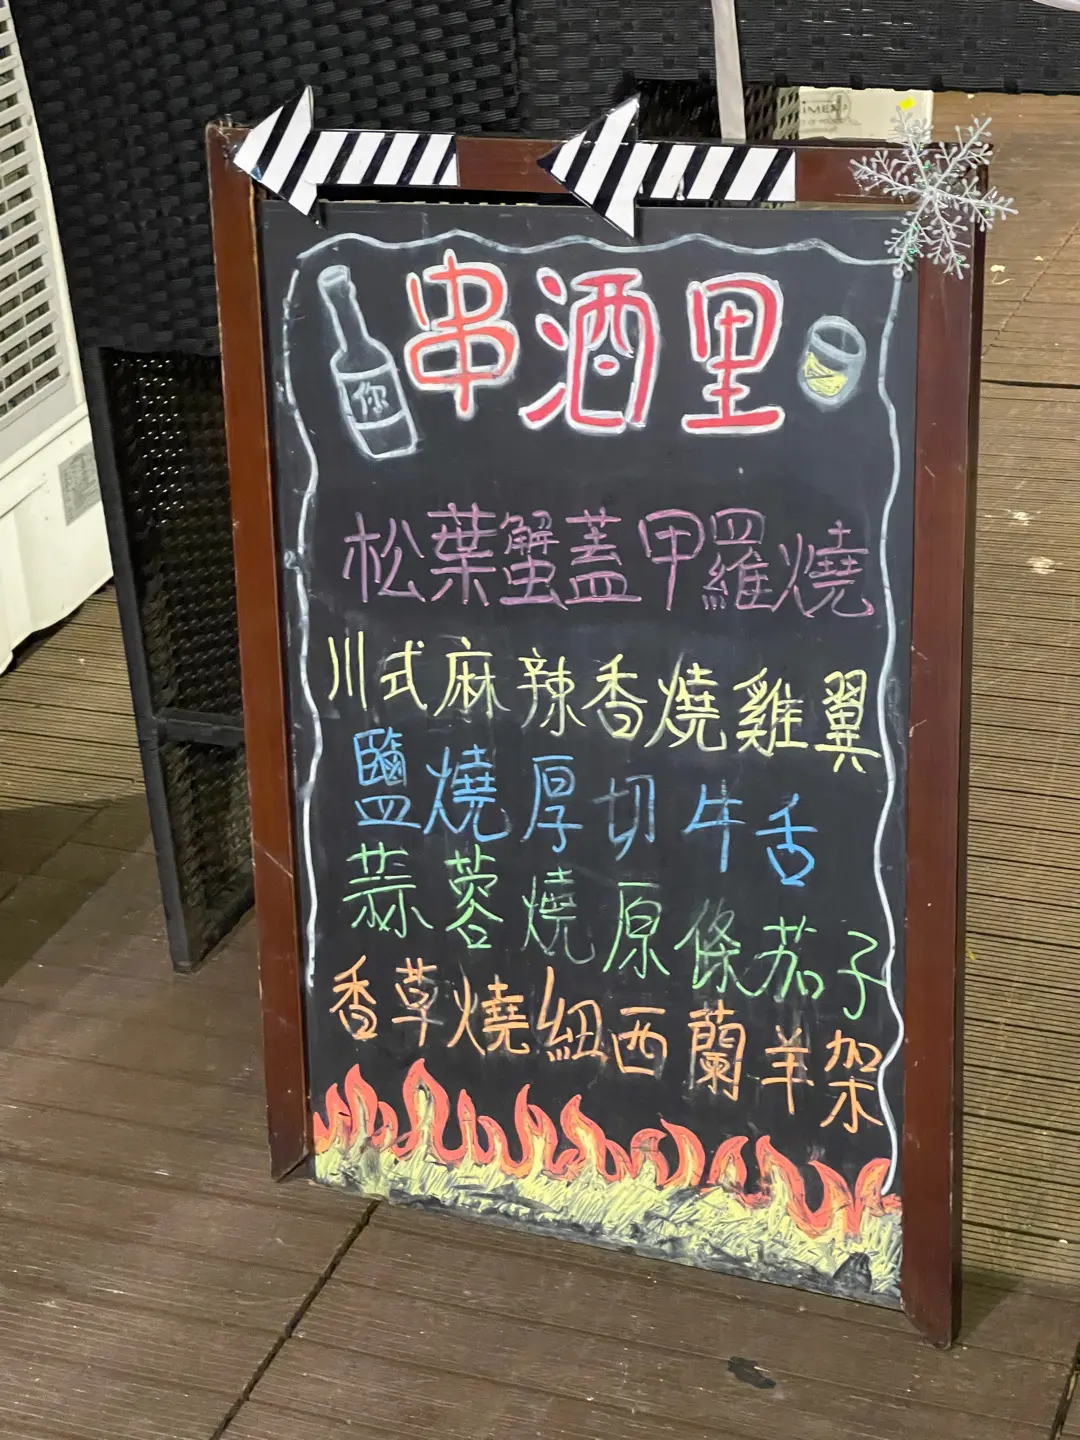 串酒里
你
松葉蟹蓋甲羅燒
川式麻辣香燒雞翼
鹽燒厚切牛舌
蒜蓉燒原條茄子
香草燒紐西蘭羊架